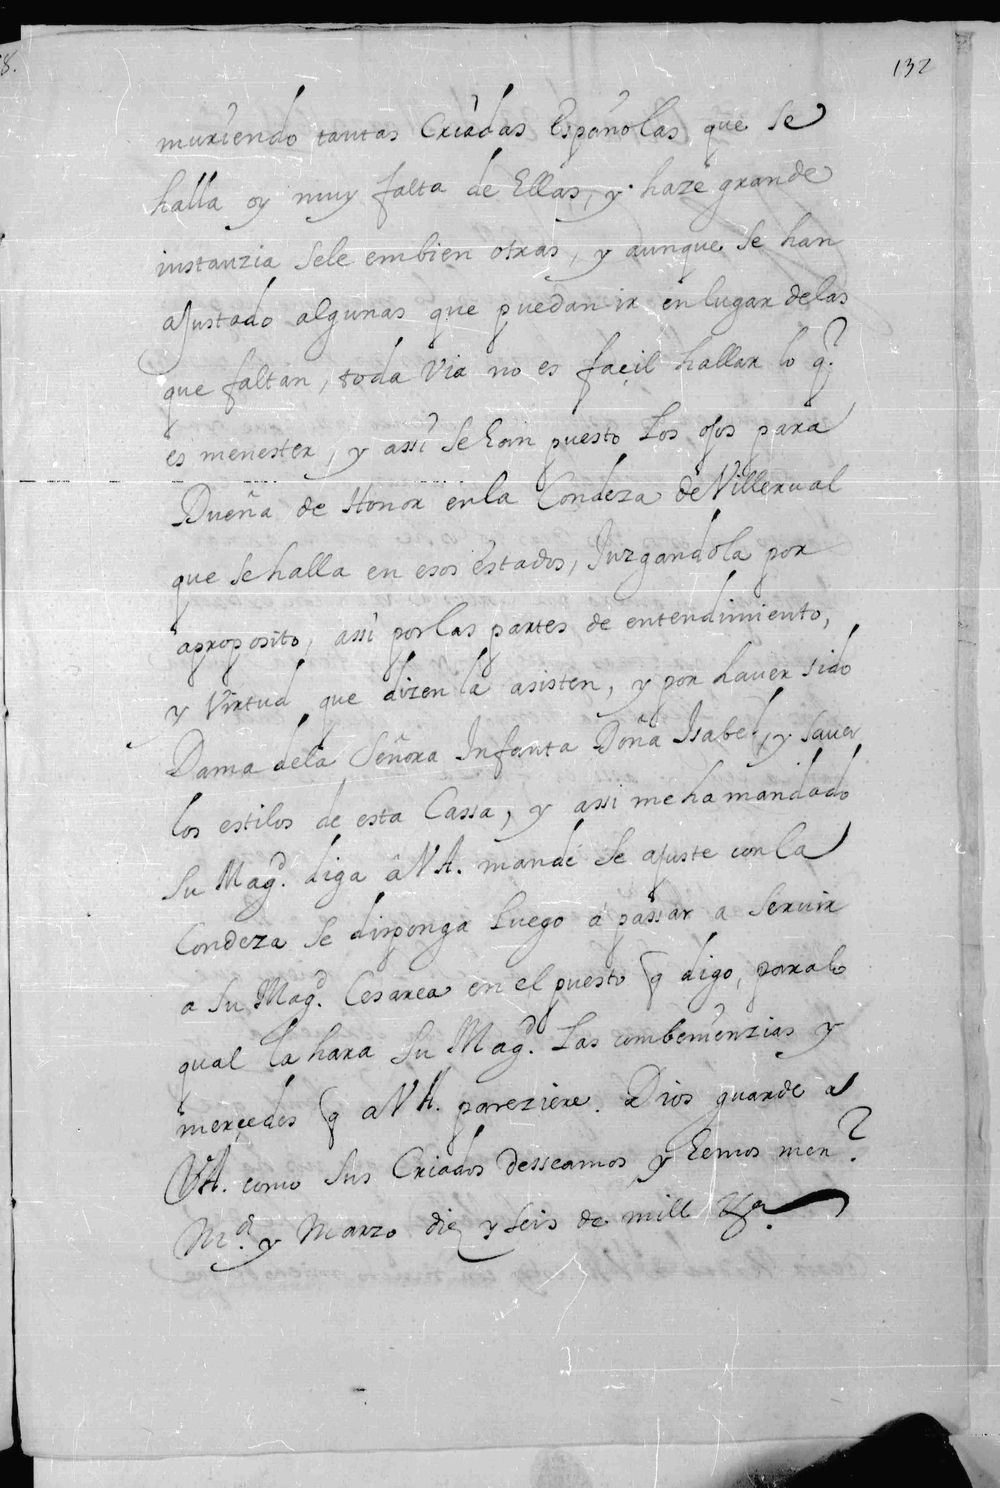 8.
132
muriendo tantas Criadas Españolas, que se
halla oy muy falta de Ellas, y haze grande
instanzia sele embien otras, y aunque se han
ajustado algunas que puedan ir en lugar delas
que faltan, toda Via no es façil hallar lo q.
es menester, y assi se han puesto los ojos para
Dueña de Honor enla Condeza de Villerual
que se halla en esos estados, Juzgandola por
aproposito, assi por las partes de entendimiento,
y Virtud que dizen la asisten, y por hauer sido
Dama dela Señora Infanta Doña Isabel, y sauer
los estilos de esta Cassa, y assi me ha mandado
Su Magd. diga á V A. mande se ajuste con la
Condeza se disponga luego á passar a Seruir
a Su Magd. Cesarea en el puesto q digo, para lo
qual la hara Su Magd. Las combenienzias y
merçedes q a V A. pareziere. Dios guarde a
V A. como Sus Criados desseamos y hemos men.
Md. y Marzo diez y seis de mill